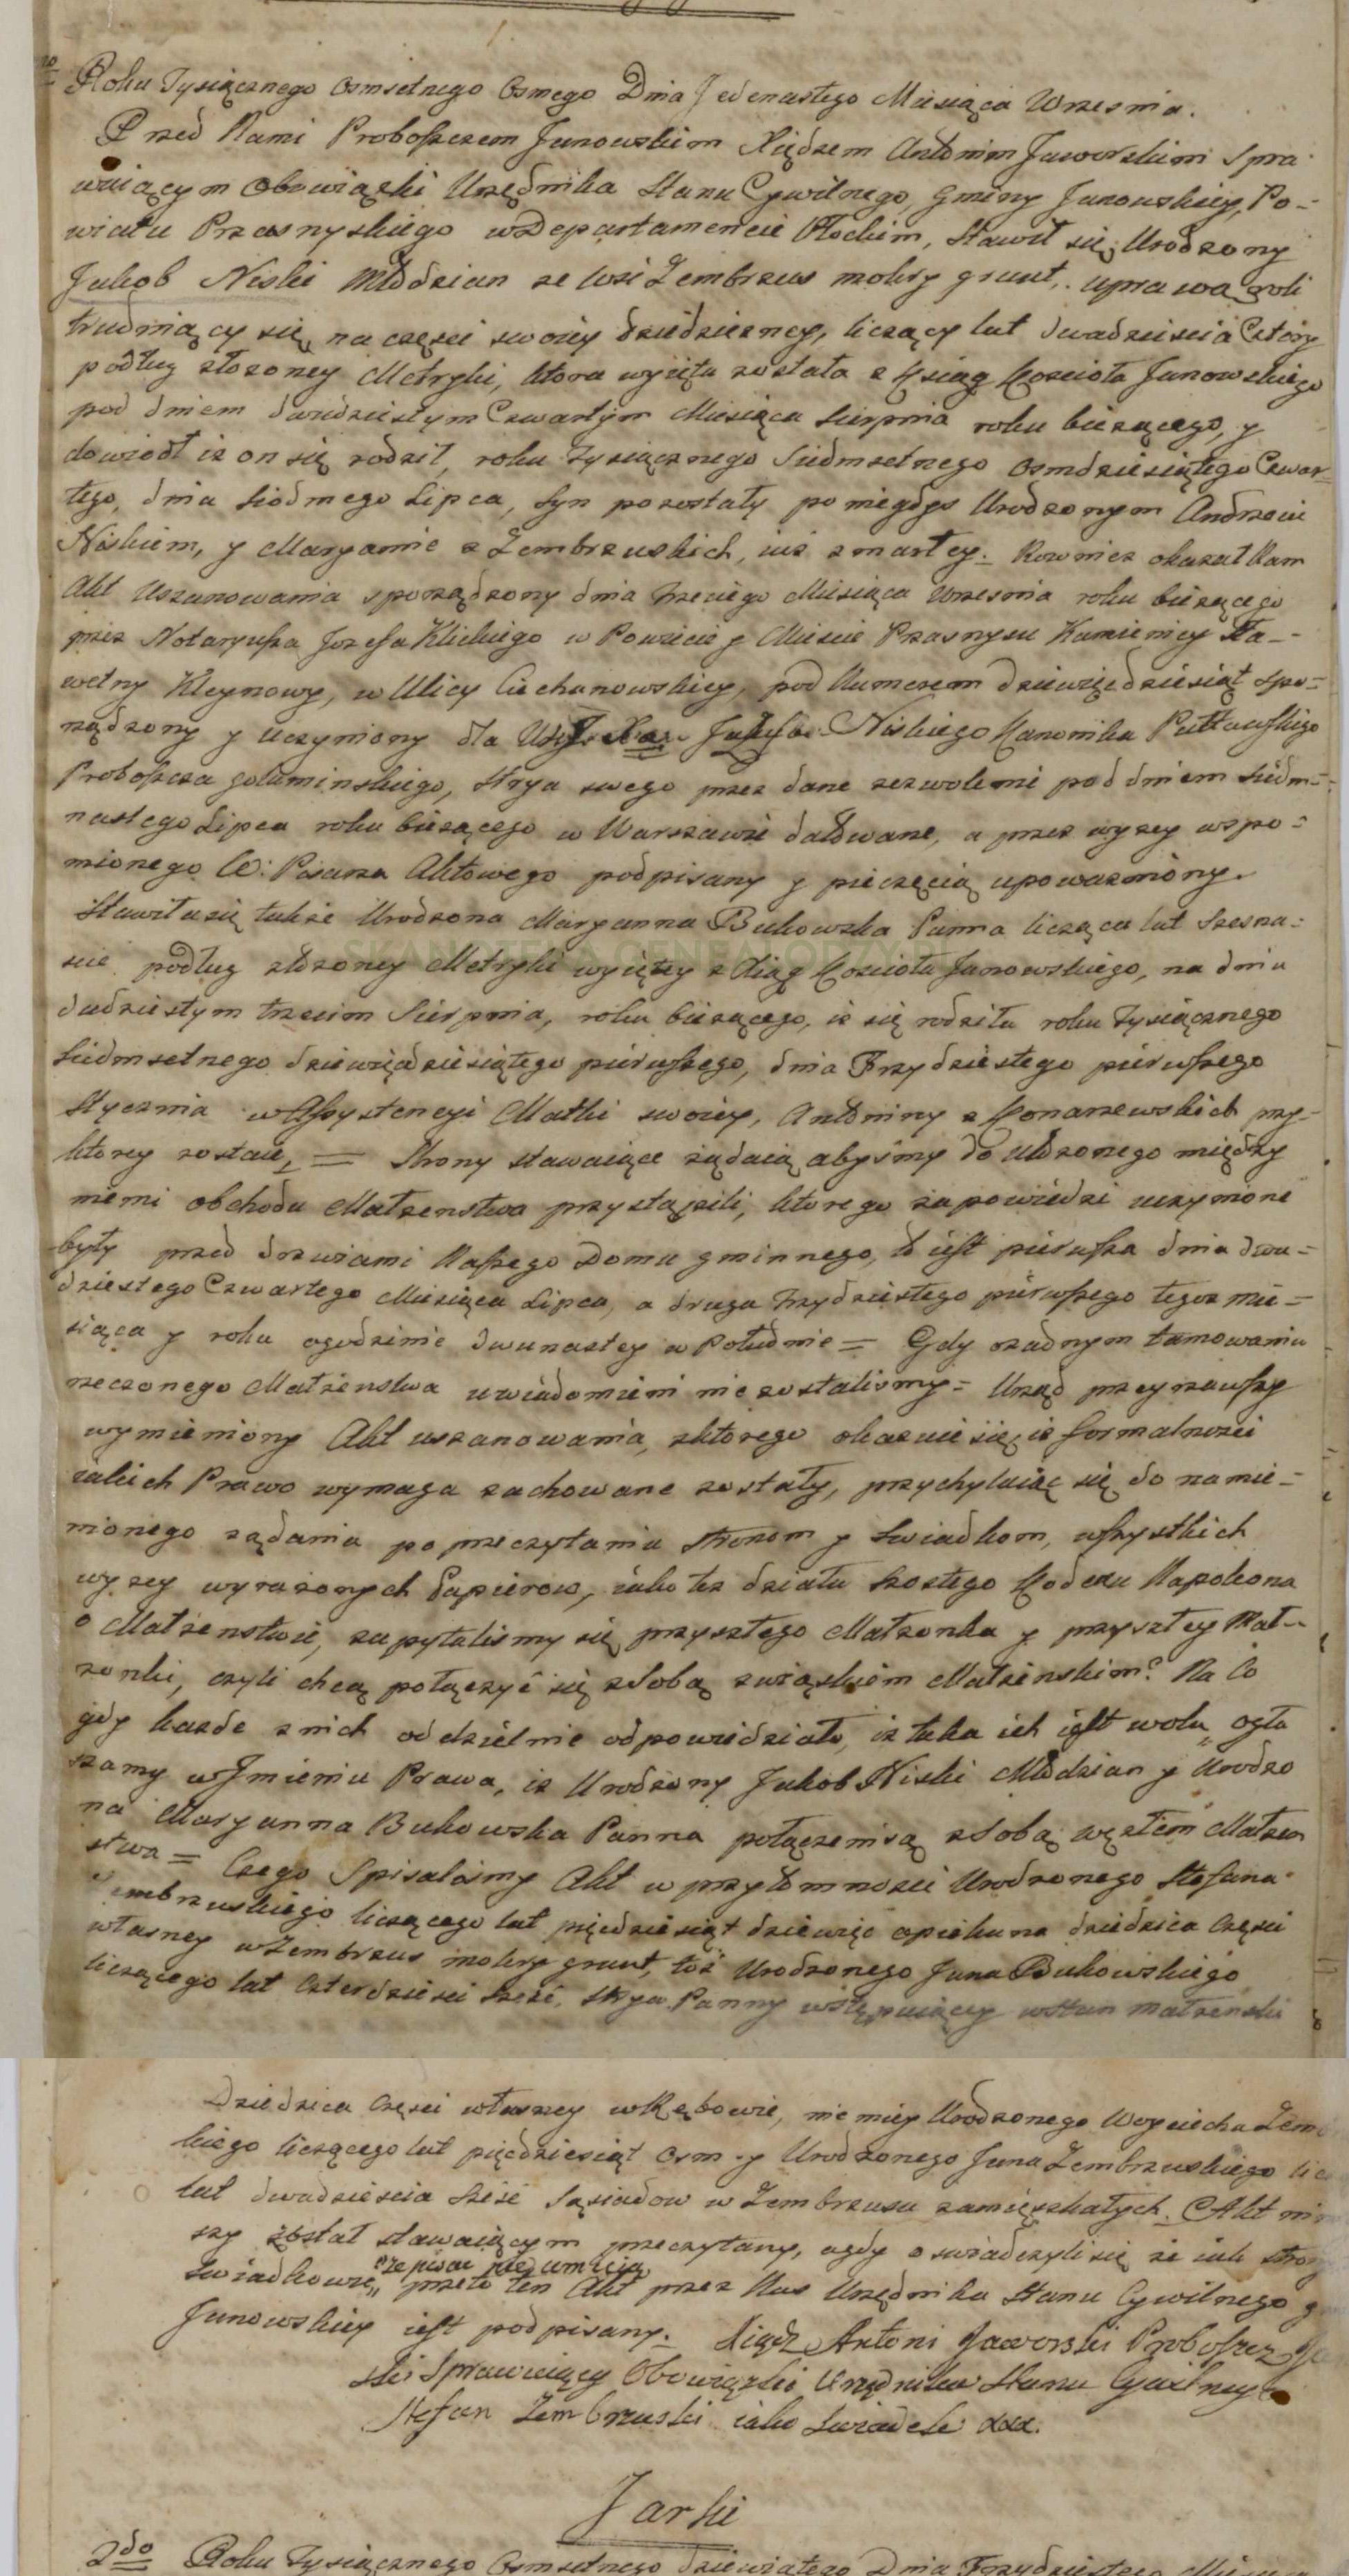 Roku Tysiącznego osmsetnego osmego Dnia Jedenastego Miesiąca Wrzesnia.
Przed Nami Proboszczem Janowskim Xiędzem Antonim Jaworskim Spra
wuiącym Obowiązki Urzędnika Stanu Cywilnego, Gminy Janowskiey, Po-
wiatu Przasnyskiego w Departamencie Płockim, Stawił się Urodzony
Jakob Niski Młodzian ze wsi Zembrzus mokry grunt, uprawą roli
trudniący się, na części swoiey dziedziczney, liczący lat dwadziescia Cztery
podług złożoney Metryki, ktora wyięta została z Xsiąg Kościoła Janowskiego
pod dniem dwudziestym Czwartym Miesiąca Sierpnia roku bieżącego, y
dowiodł iż on się rodził, roku tysiącznego Siedmsetnego osmdziesiątego Czwar-
tego, dnia siodmego Lipca, syn pozostały po niegdys Urodzonym Andrzeiu
Niskiem, y Maryannie z Zembrzuskich, iuż zmarłey. Rownież okazał Nam
Akt Uszanowania sporządzony dnia trzeciego Miesiąca Wrzesnia roku bieżącego
przez Notaryusza Jozefa Klickiego w Powiecie y Miescie Przasnyszu Kamienicy Na--
wetny Kleynowy, w Ulicy Ciechanowskiey, pod Numerem dziewięcdziesiąt spo=
rządzony y uczyniony dla Jakuba Niskiego Kanonika Pułtuskiego
Proboszcza gołuminskiego, Stryia swego przez dane zezwolenie pod dniem siedm=
nastego Lipca roku bieżącego w Warszawie datowane, a przez wyzey wspo=
mionego W: Pisarza Aktowego podpisany y pieczęcią upoważniony.
Stawiła się także Urodzona Maryanna Bukowska Panna licząca lat szesna=
scie podług złożoney Metryki wyiętey z Xiąg Kościoła Janowskiego, na dniu
dudziestym trzecim Sierpnia, roku bieżącego, iż się rodziła roku tysiącznego
siedmsetnego dziewiędziesiątego pierwszego, dnia Trzydziestego pierwszego
Stycznia w Assystencyi Matki swoiey, Antoniny z Konarzewskich przy-
ktorey zostaie, = Strony stawaiące żądaią abyśmy do ułożonego między
niemi obchodu Małżeństwa przystąpili, ktorego zapowiedzi uczynione
były przed drzwiami Naszego Domu gminnego, to iest pierwsza dnia dwu=
dziestego Czwartego Miesiąca Lipca, a druga trzydziestego pierwszego tegoż mie=
siąca y roku ogodzinie dwunastey w Południe = Gdy żadnym tamowaniu
rzeczonego Małżenstwa uwiadomieni nie zostalismy = Urząd przeyrzawszy
wymieniony Akt uszanowania, zktorego okazuie się, iż formalnosci
iakich Prawo wymaga zachowane zostały, przychylaiąc się do namie=
nionego żądania po przeczytaniu stronom y swiadkom, wszystkich
wyzey wyrażonych Papierow, iako też działu szostego Kodexu Napoleona
o Małżenstwie, zapytalismy się przyszłego Małżonka y przyszłey Mał-
żonki, czyli chcą połączyć się z Sobą związkiem Małżenskim? Na Co
gdy każde z nich oddzielnie odpowiedziało, iż taka ich iest wola, ogła
szamy w Jmieniu Prawa, iż Urodzony Jakob Niski Młodzian y Urodzo
na Maryanna Bukowska Panna połączeni są z Sobą węzłem Małżen
stwa = Czego Spisalismy Akt w przytomnosci Urodzonego Stefana
Zembrzuskiego liczącego lat pięcdziesiąt dziewięc opiekuna dziedzica Części
własney w Zembrzus mokry grunt, też Urodzonego Jana Bukowskiego
liczącego lat czterdziesci szesć, Stryia Panny wstępuiącey w Stan małżenski
Dziedzica Częsci własney w Rębowie, nie mniey Urodzonego Woyciecha Zemb
kiego liczącego lat pięćdziesiąt osm y Urodzonego Jana Zembrzuskiego lic
lat dwadziescia szesć Sąsiadow w Zembrzusu zamięszkałych. Akt nin
szy został stawaiącym przeczytany, a gdy oswiadczyli się że iak stron
że pisac nie umieią
Swiadkowie,, przeto ten Akt przez Nas Urzędnika Stanu Cywilnego g
Janowskiey iest podpisany. Xiądz Antoni Jaworski Proboszcz Ja
ski Sprawuiący Obowiązki Urzędnika Stanu Cywilnego
Stefan Zembrzuski iako Swiadek xxx.
Jarki
2do Roku Tysiącznego Osmsetnego dziewiątego Dnia Trzydziestego